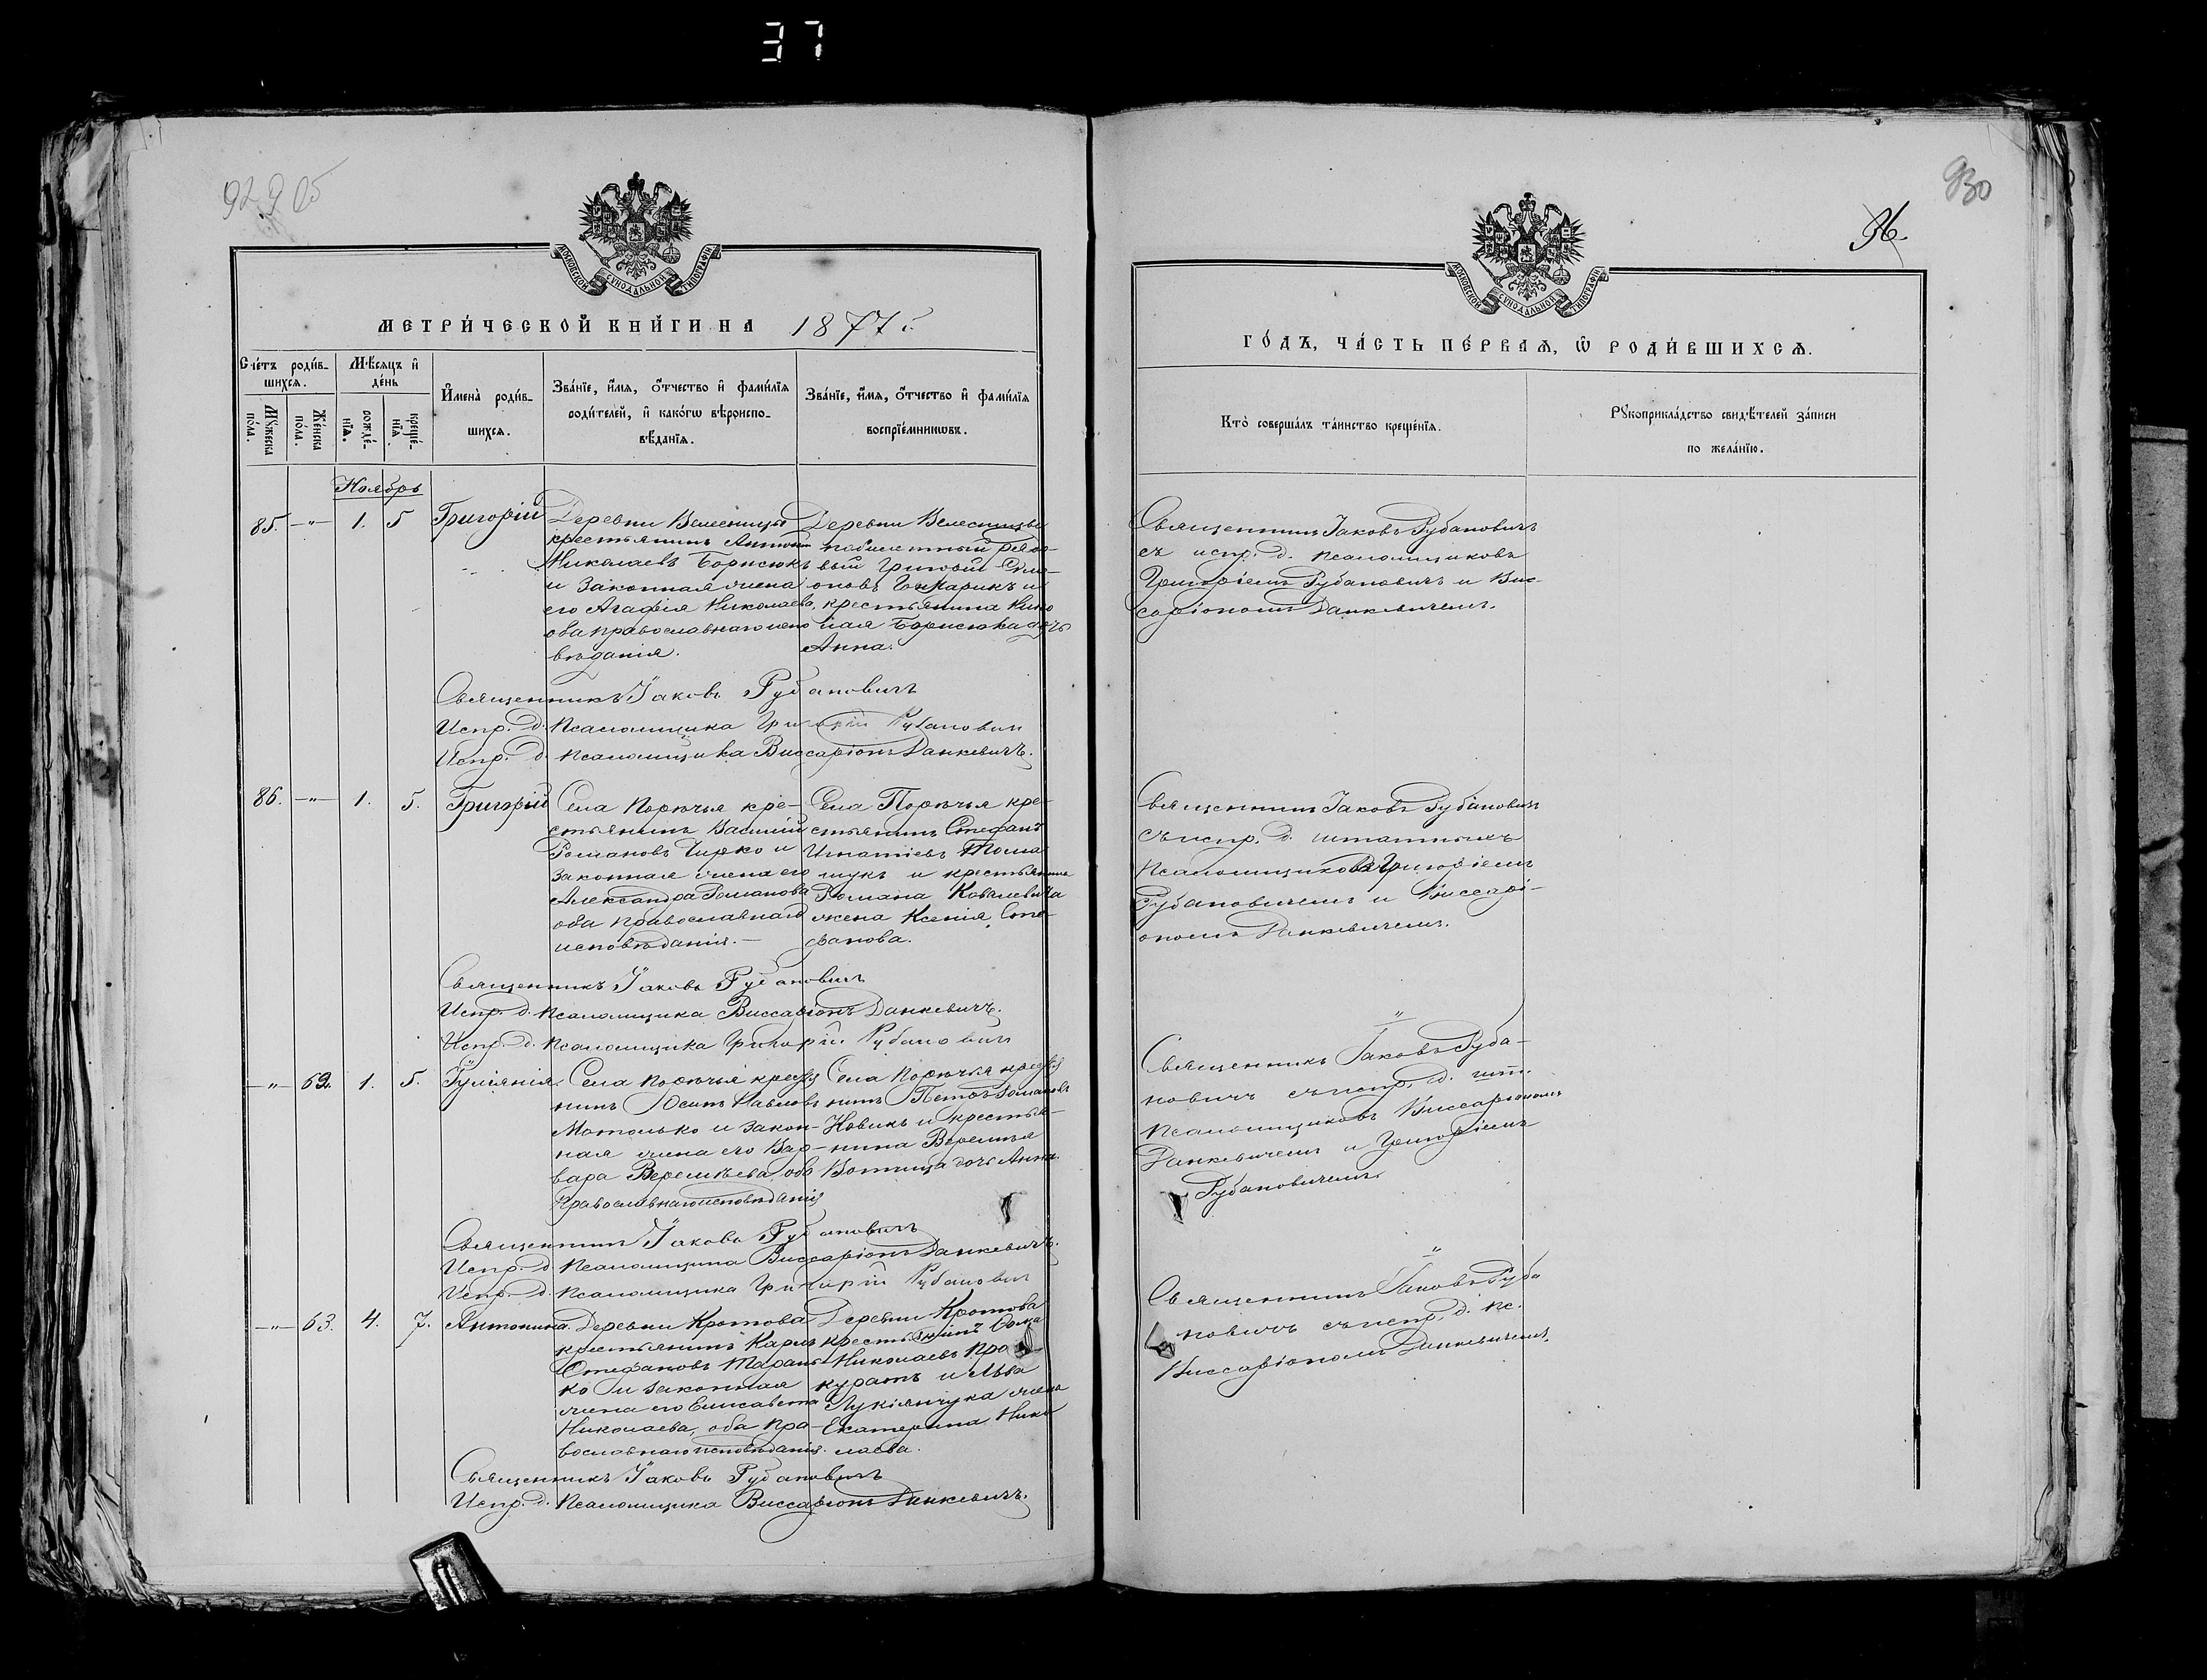 37
929 об
930
36.
МОСКОВСКОЙ СУНОДАЛЬНОЙ ТИПОГРАФІИ
МЕТРИ́ЧЕСКОЙ КНИ́ГИ НА 1877 г.
Сче́тъ роди́в-
шихсѧ.
Мѣ́сяцъ и҆
де́нь
Мꙋ́жеска
по́ла.
Же́нска
по́ла.
рожде́-
нїѧ.
креще́-
нїѧ.
И҆мена̀ роди́в-
шихсѧ.
Зва́нїе, и҆́мѧ, ѻ҆́тчество и҆ фами́лїѧ
роди́телей, и҆ како́гѡ вѣроиспо-
вѣ́данїѧ.
Зва́нїе, и҆́мѧ, ѻ҆́тчество и҆ фами́лїѧ
воспрїе́мникѡвъ.
Ноябрь
85. -"- 1. 5 Григорій
Деревни Велесницы
крестьянинъ Антонъ
Николаевъ Борисюкъ
и законная жена
его Агафія Николае-
ва оба православнаго испо
вѣданія.
Деревни Велесницы
вый Григорій
оновъ и
крестьянина Нико
лая Борисюка дочь
Анна.
Священникъ Іаковъ Рубановичъ
Испр. д. Псаломщика Григорій Рубанович
Испр. д. Псаломщика Виссаріонъ Данкевичъ.
86. -"- 1. 5. Григорій
Села Порѣчья кре-
стьянинъ Василій
Романовъ Чирко и
законная жена его
Александра Романова
оба православнаго
исповѣданія.-
Села Порѣчья кре-
стьянинъ Стефанъ
Игнатіевъ Тома
шукъ и крестьянина
Романа Ковалевича
жена Ксенія Сте-
фанова.
Священникъ Іаковъ Рубановичъ
Испр. д. Псаломщика Виссаріонъ Данкевичъ.
Испр. д. Псаломщика Григорій Рубанович
-"- 62. 1. 5. Іуліанія
Села Порѣчья крестья
нинъ Осипъ Павловъ
Мотолько и закон-
ная жена его Вар-
вара Веремѣева, оба
православнаго исповѣданія
Села Порѣчья крестья
нинъ Петръ Романовъ
Новикъ и крестья-
нина Веремѣя
дочь Анна.
Священникъ Іаковъ Рубановичъ
Испр. д. Псаломщика Виссаріонъ Данкевичъ.
Испр. д. Псаломщика Григорій Рубанович
-"- 63. 4. 7. Антонина.
Деревни Кротова
крестьянинъ Карпъ
Стефановъ Таран-
ко и законная
жена его Елисавета
Николаева, оба пра-
вославнаго исповѣданія.
Деревни Кротова
крестьянинъ Ѳома
Николаевъ Про
куратъ и Льва
Лукіянчука жена
Екатерина Нико
лаева.
Священникъ Іаковъ Рубановичъ
Испр. д. Псаломщика Виссаріонъ Данкевичъ.
МОСКОВСКОЙ СУНОДАЛЬНОЙ ТИПОГРАФІИ
ГО́ДЪ, ЧА́СТЬ ПЕ́РВАѦ, Ѡ҆ РОДИ́ВШИХСѦ.
Кто̀ соверша́лъ та́инство креще́нїѧ.
Рꙋкоприкла́дство свидѣ́телей за́писи
по жела́нїю.
Священникъ Іаковъ Рубановичъ
съ испр. д. псаломщиковъ
Григоріемъ Рубановичъ и Вис-
саріономъ Данкевичемъ.
Священникъ Іаковъ Рубановичъ
съ испр. д. штатныхъ
псаломщиковъ Григоріемъ
Рубановичемъ и Виссарі-
ономъ Данкевичемъ.
"
Священникъ Іаковъ Руба-
новичъ съ испр. д. шт.
псаломщиковъ Виссаріономъ
Данкевичемъ и Григоріемъ
Рубановичемъ
"
Священникъ Іаковъ Руба
новичъ съ испр. д. пс.
Виссаріономъ Данкевичемъ.